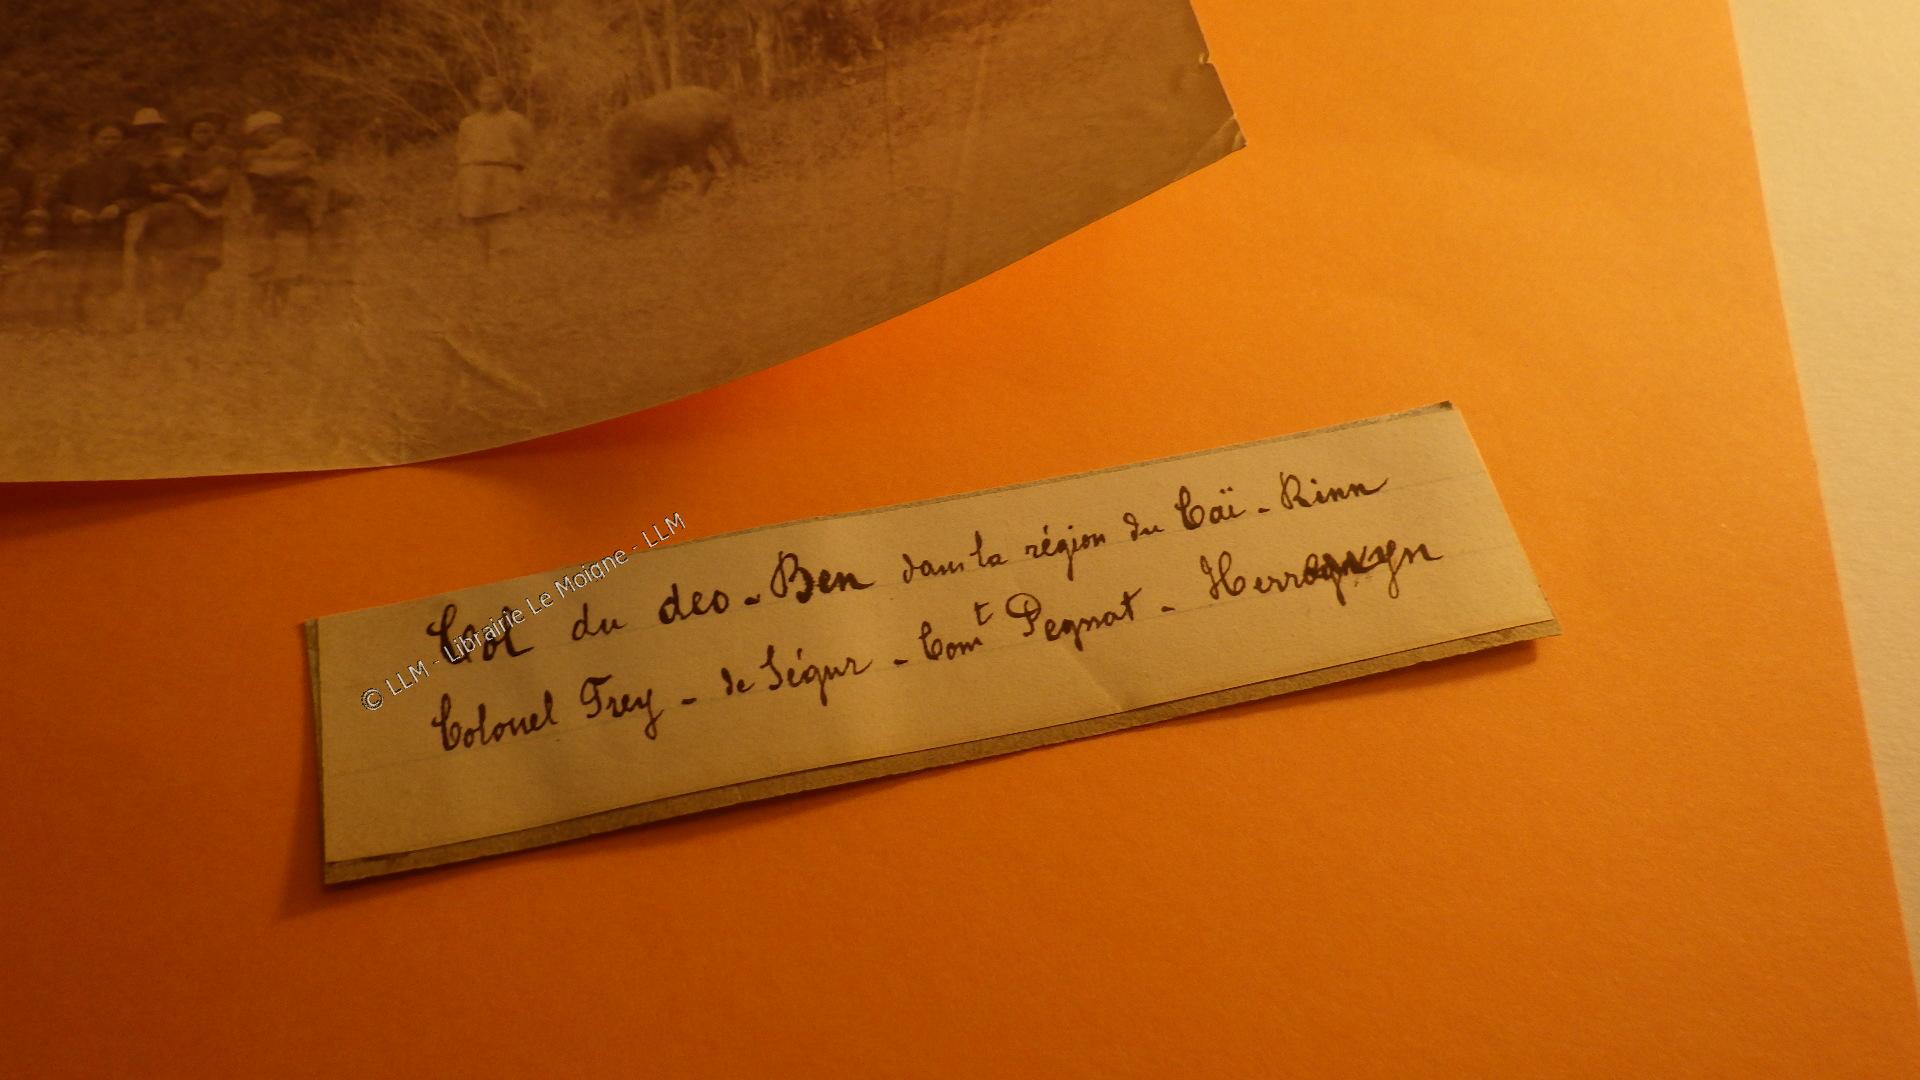 Col du deo-Ben dans la région du Caï-Kinn
Colonel Frey - de Ségur - Comt Pegnat -
© LLM - Librairie Le Moigne - LLM